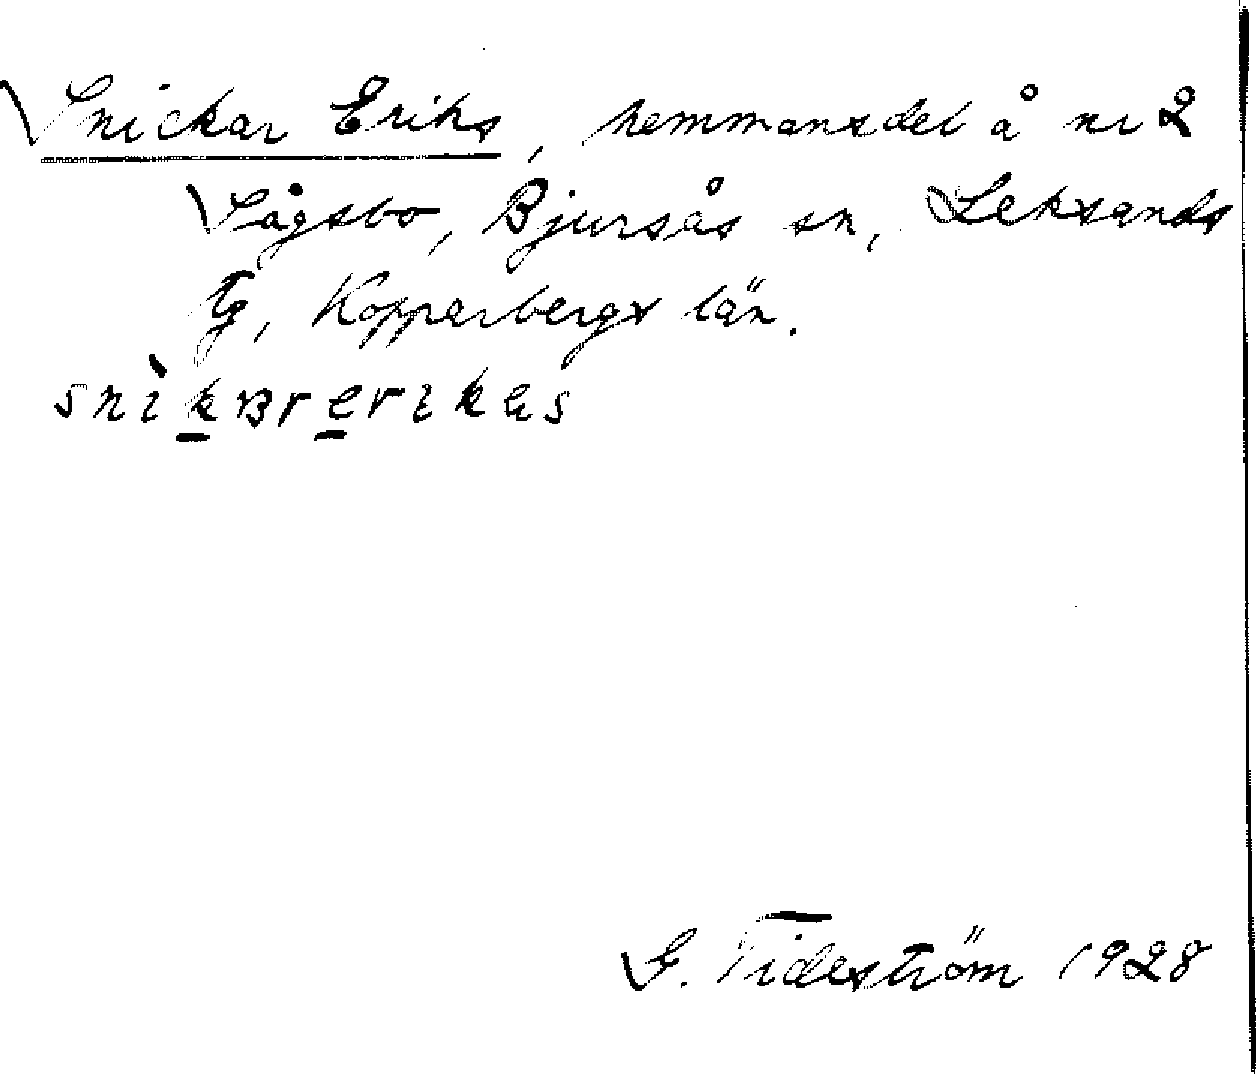 Snickar Eriks, hemmansdel å nr 2
Sågsbo, Bjursås sn, Leksands
tg, Kopparbergs län.
G. Tideström 1928